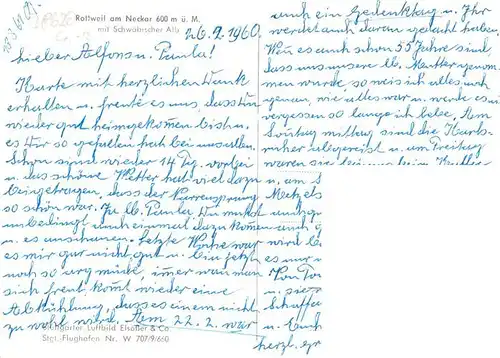 Rottweil am Neckar 600 m ü. M.
mit Schwäbischer Alb
26.2.1960.
Lieber Alfons u. Paula!
Karte mit herzlichen Dank
erhalten u. freute es uns, dass Du
wieder gut heimgekommen bist u.
es Dir so gefallen hat bei uns allen.
Schon sind wieder 14 Tg. vorbei
u. das schöne Wetter hat viel dazu
beigetragen, dass der Narrensprung
so schön war. Ja lb. Paula Du musst
unbedingt auch einmal dazu kommen
u. es anschauen. Letzte Woche war
es mir gar nicht gut u. bin jetzt
noch so arg müde, immer wenn man
sich freut kommt wieder eine
Abkühlung, dass es einem nicht
zu wohl wird. Am 22.2. war
auch ein Gedenktag u. Ihr
werdet auch daran gedacht haben.
Wenn es auch schon 55 Jahre sind
dass uns unsere lb. Mutter genom-
men wurde, so weis ich alles noch
genau, wie alles war u. werde es nie
vergessen so lange ich lebe. Am
Sonntag mittag sind die Karls-
ruher abgereist u. am Freitag
waren sie
u. am S
Metzels
wird
es nur
Von
u.
Schaffe
u. Euch
herzl. gr
Stuttgarter Luftbild Elsäßer & Co
Stgt.-Flughafen Nr. W 707/9/660